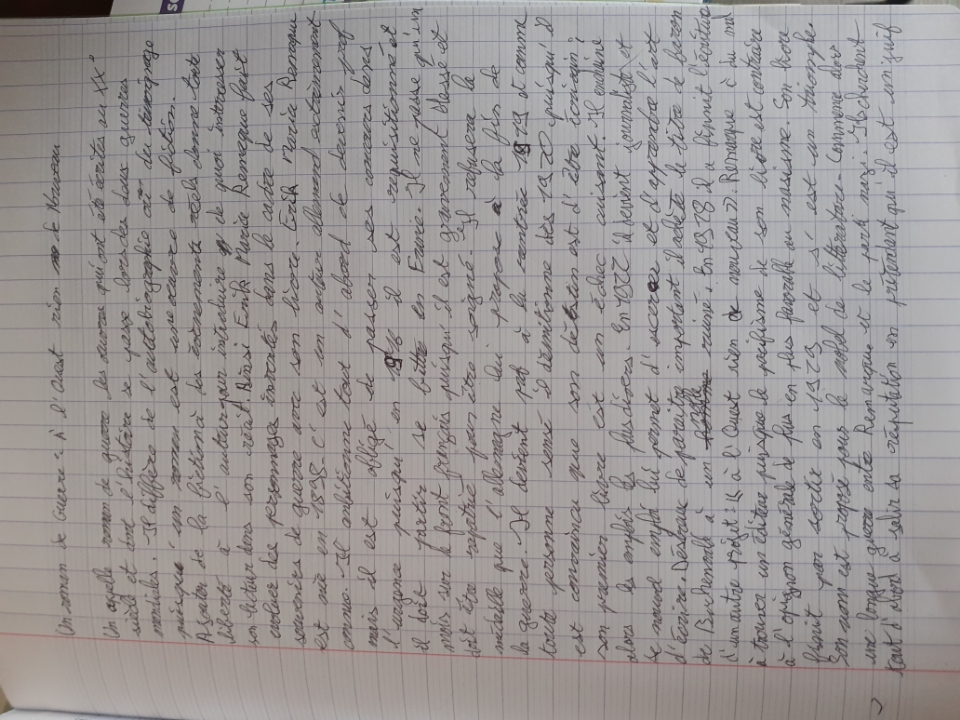 Un roman de Guerre : À l'Ouest rien de Nouveau
On appelle roman de guerre les œuvres qui ont été écrites au XX°
siècle et dont l'histoire se passe lors des deux guerres
mondiales. Il diffère de l'autobiographie et du témoignage
puisque un roman est une œuvre de fiction.
Ajouter de la fiction à des événements réels donne toute
liberté à l'auteur pour introduire de quoi intéresser
son lecteur dans son récit. Ainsi Erik Maria Remarque fait
évoluer des personnages inventés dans le cadre de ses
souvenirs de guerre avec son livre. Erik Maria Remarque
est né en 1898. C'est un auteur allemand extrêmement
connu. Il ambitionne tout d'abord de devenir prof
mais il est obligé de passer ses concours dans
l'urgence puisqu'en 1916 il est réquisitionné et
il doit partir se battre en France. Il ne passe qu'un
mois sur le front français puisqu'il est gravement blessé et
doit être rapatrié pour être soigné. Il refusera la
médaille que l'allemagne lui propose à la fin de
la guerre. Il devient prof à la rentrée 1919 et comme
toute personne sensé il démitionne dès 1920 puisqu'il
est convaincu que son destin est d'être écrivain ;
son premier livre est un échec cuisant. Il enchaine
alors les emplois les plus divers. En 1922 il devient journaliste et
ce nouvel emploi lui permet d'exercer et d'apprendre l'art
d'écrire. Désireux de paraitre important il achète le titre de baron
de Buchenwald à un noble ruiné. En 1928 il a finit l'écriture
d'un autre projet : « à l'Ouest rien de nouveau ». Remarque a du mal
à trouver un éditeur puisque le pacifisme de son livre est contraire
à l'opignon générale de plus en plus favorable au nazisme. Son livre
finit par sortir en 1929 et s'est un triomphe.
Son nom est proposé pour le nobel de littérature. Commence alors
une longue guerre entre Remarque et le parti nazi. Ils cherchent
tout d'abord à salir sa réputation en prétendant qu'il est un juif